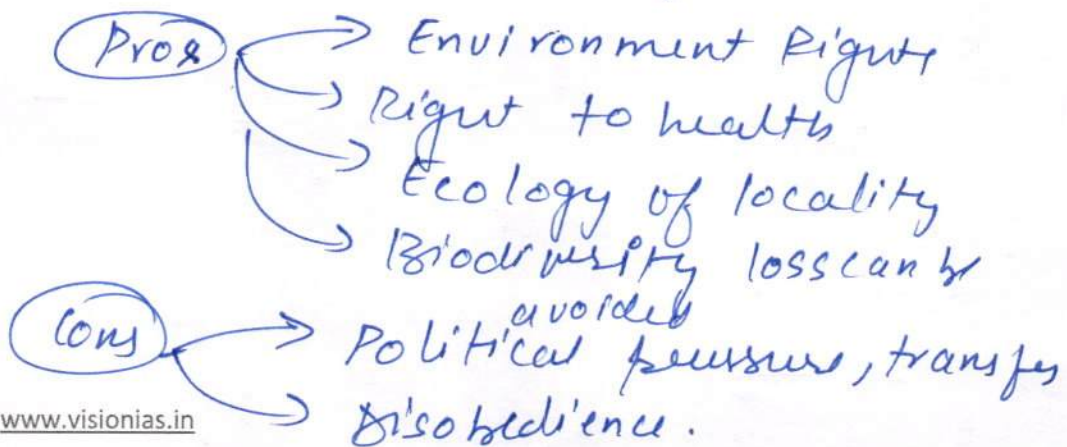 Pros
Environment Rights
Right to health
Ecology of locality
Biodiversity loss can be
avoided
Cons
Political pressure, transfer
Disobedience.
www.visionias.in